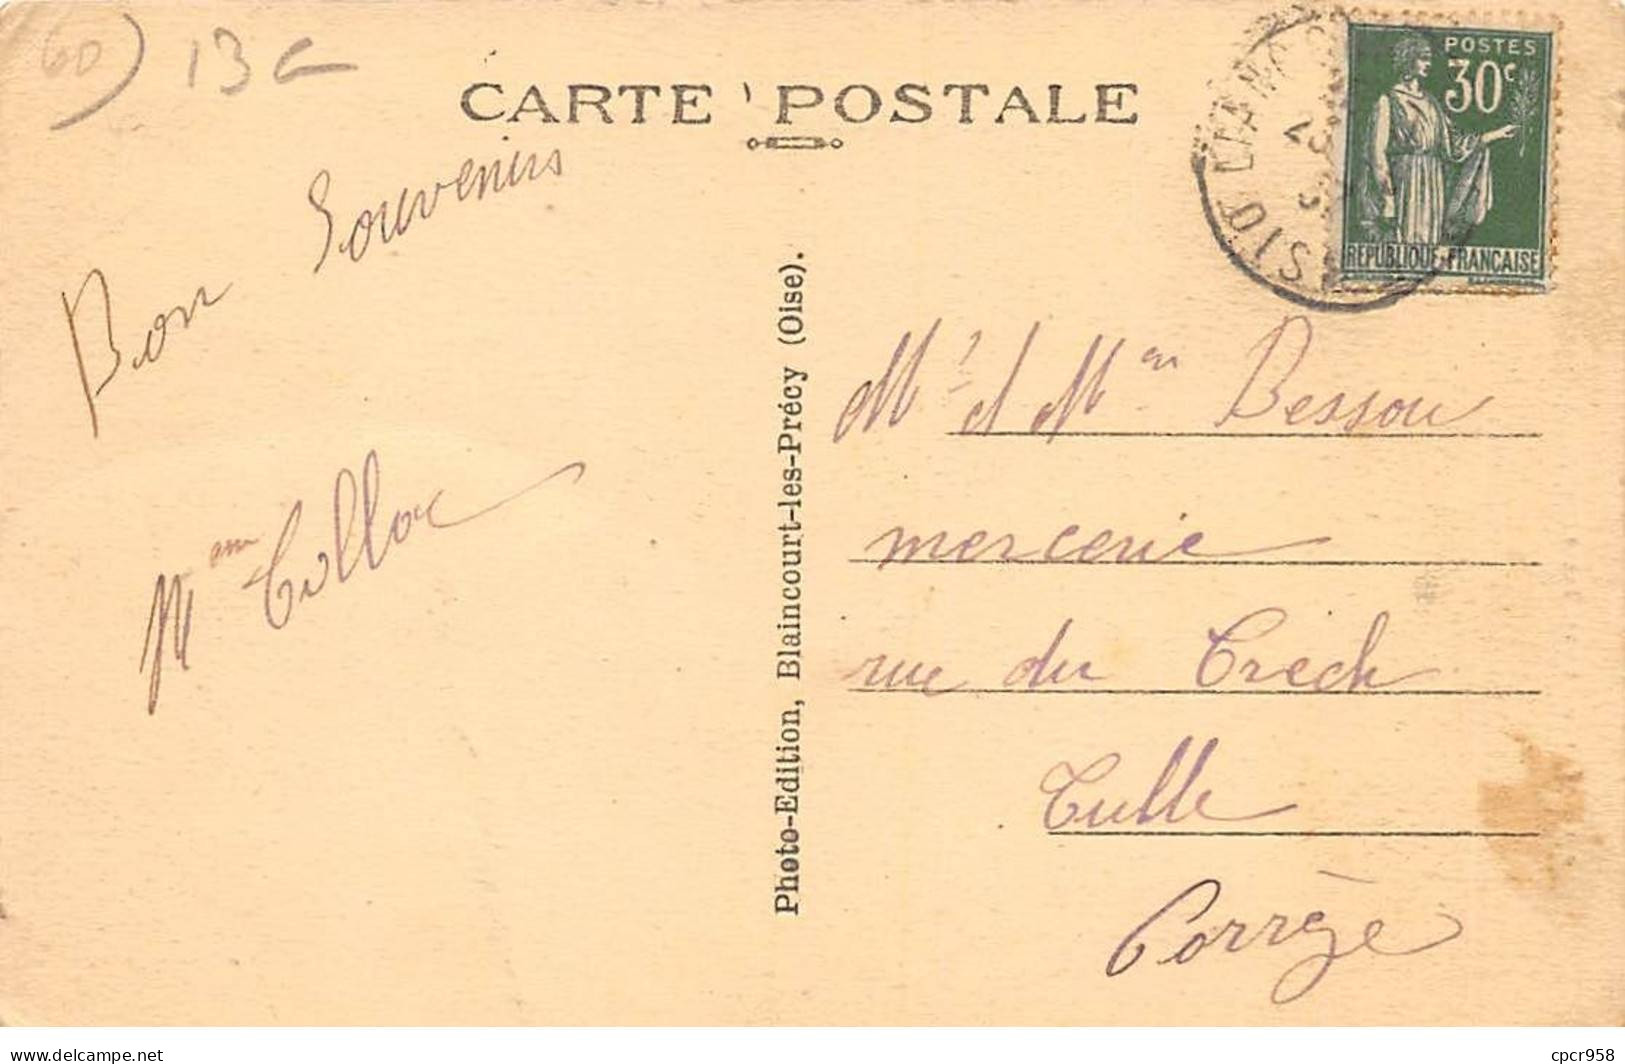 60)
13
CARTE POSTALE
POSTES
30c
RÉPUBLIQUE FRANÇAISE
Bon Souvenirs
Mam
Photo-Edition, Blaincourt-les-Précy (Oise).
Mr et Mme Bessou
mercerie
rue du Trech
Tulle
Corrèze
delcampe.net
cpcr958